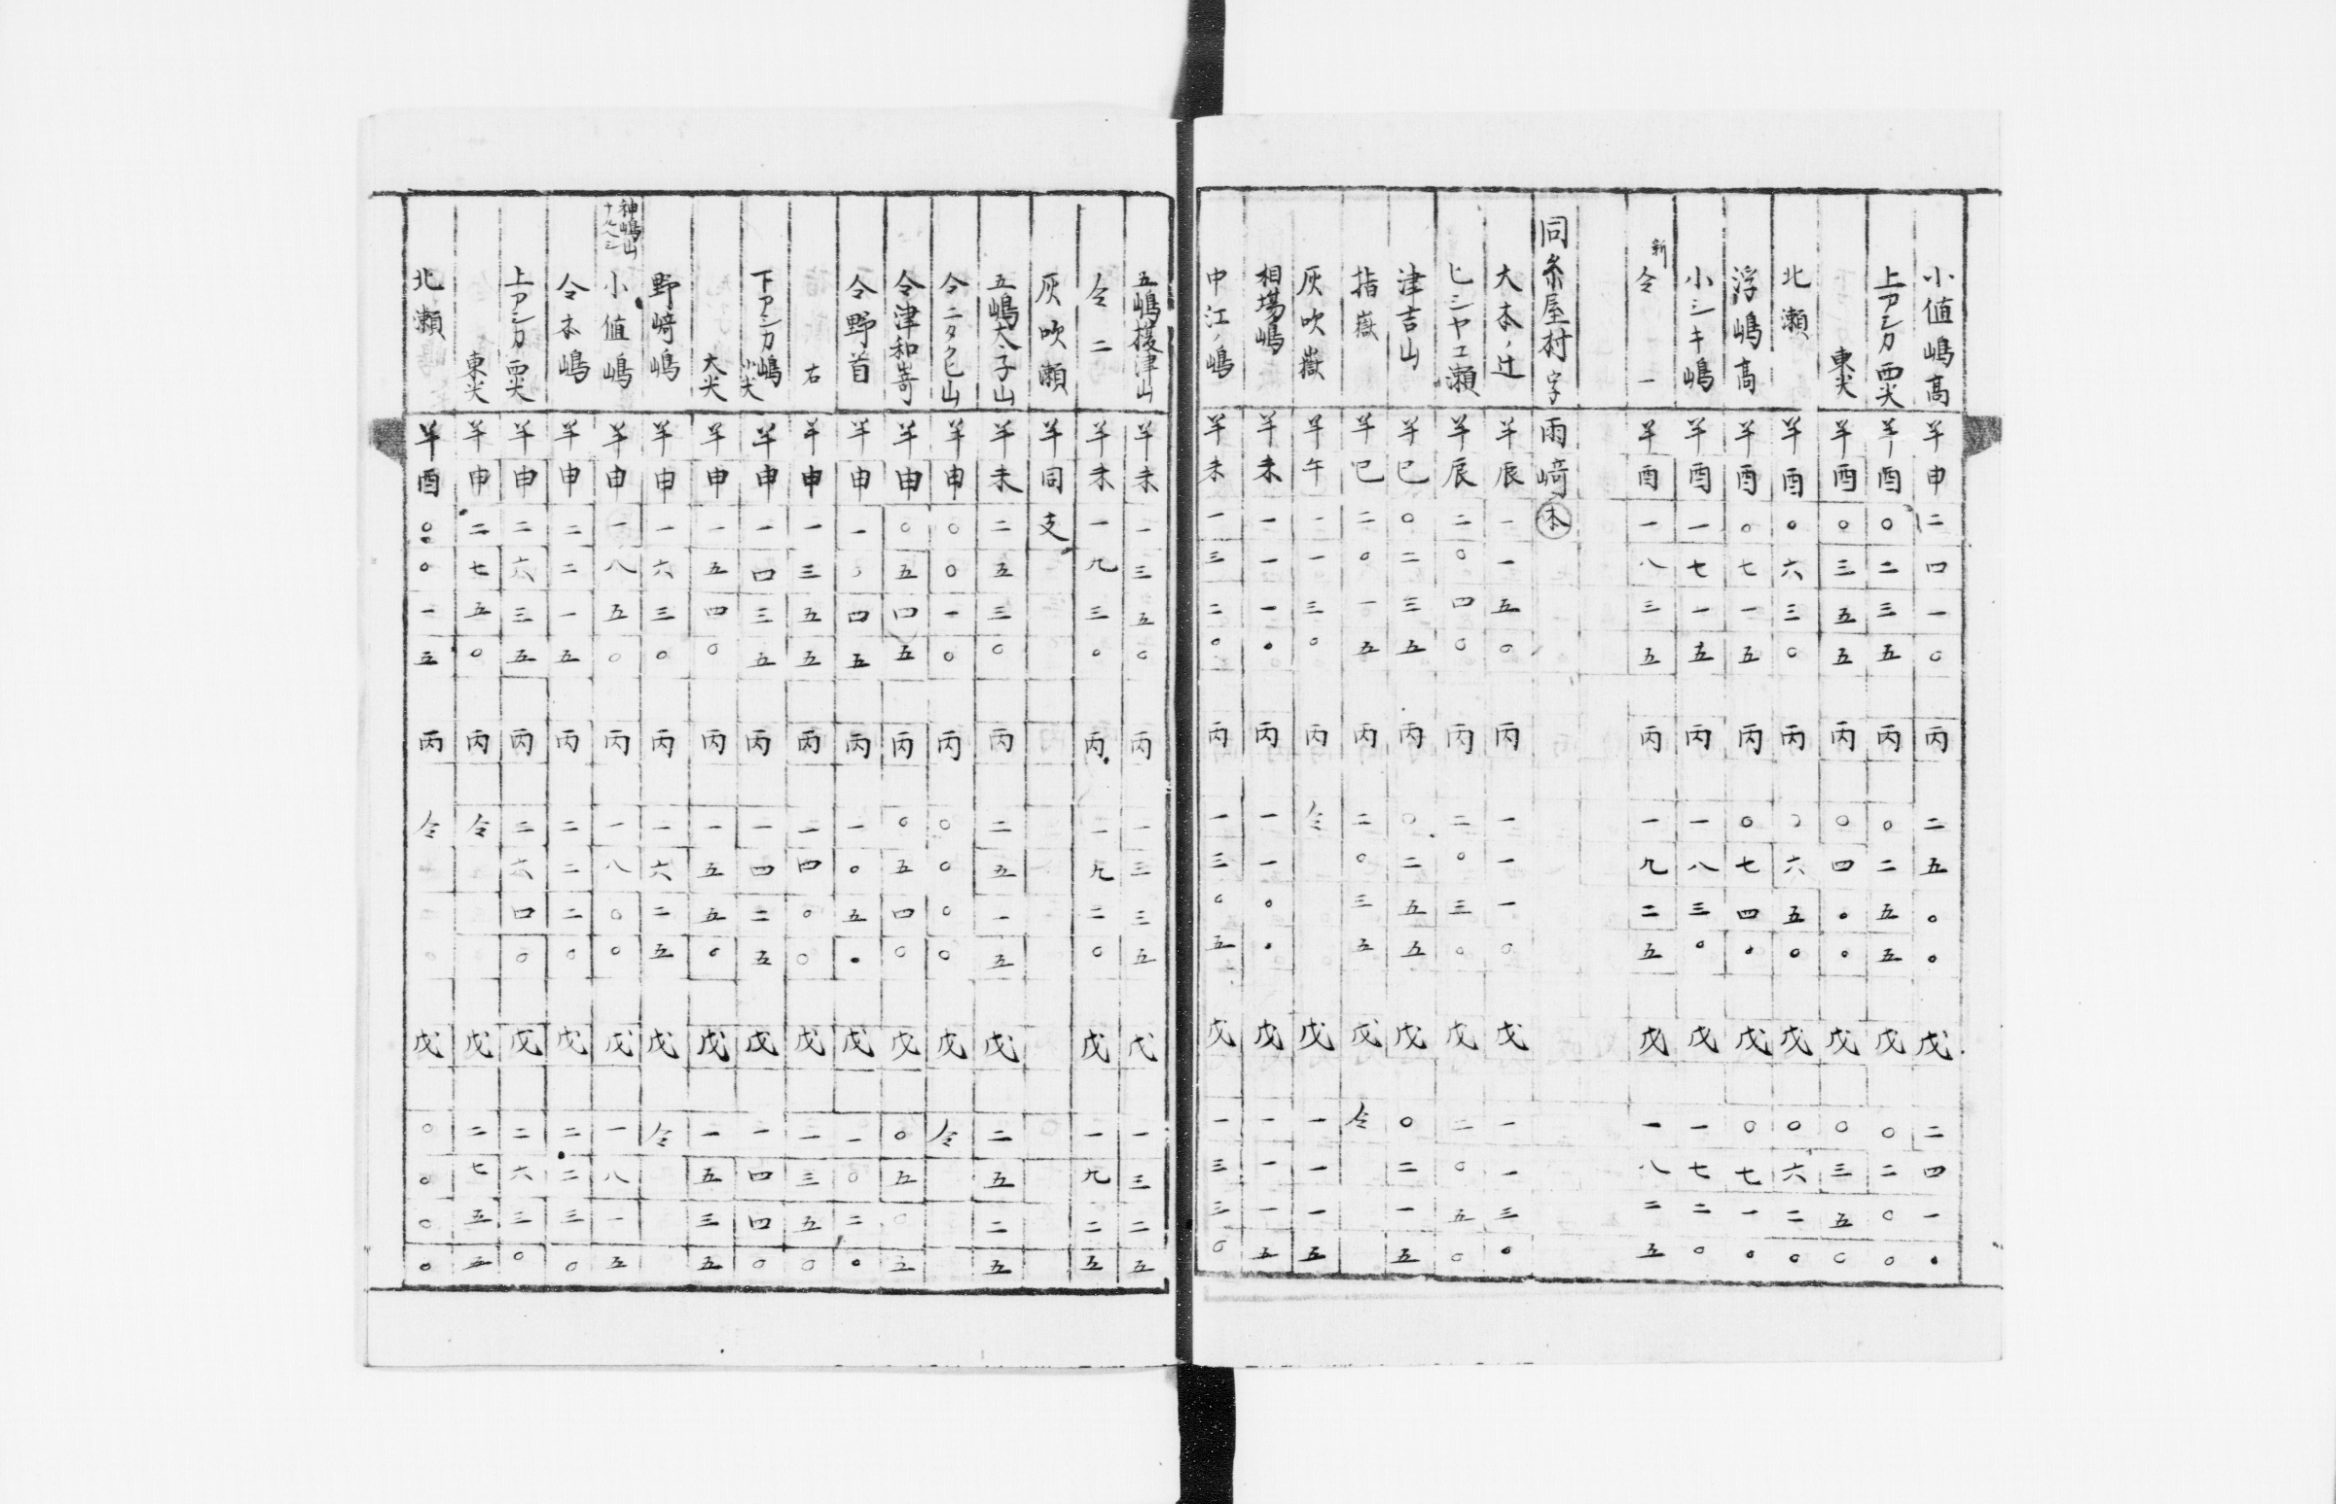 小値嶋高 羊申 二四一〇 丙 二五〇〇 戊 二四一〇
上アシカ西尖 羊酉 〇二三五 丙 〇二五五 戊 〇二〇〇
東尖 羊酉 〇三五五 丙 〇四〇〇 戊 〇三五〇
北瀬 羊酉 〇六三〇 丙 〇六五〇 戊 〇六二〇
浮嶋高 羊酉 〇七一五 丙 〇七四〇 戊 〇七一〇
小シキ嶋 羊酉 一七一五 丙 一八三〇 戊 一七二〇
新 仝 一 羊酉 一八三五 丙 一九二五 戊 一八二五
同糸屋村字雨﨑 本
大本ノ辻 羊辰 一一五〇 丙 一一一〇 戊 一一三〇
ヒシヤエ瀬 羊辰 二〇四〇 丙 二〇三〇 戊 二〇五〇
津吉山 羊巳 〇二三五 丙 〇二五五 戊 〇二一五
指嶽 羊巳 二〇一五 丙 二〇三五 戊 仝
灰吹嶽 羊午 一一三〇 丙 仝 戊 一一一五
相場嶋 羊未 一一一〇 丙 一一〇〇 戊 一一一五
中江ノ嶋 羊未 一三二〇 丙 一三〇五 戊 一三三〇
五嶋榎津山 羊未 一三五〇 丙 一三三五 戊 一三二五
仝 二 羊未 一九三〇 丙 一九二〇 戊 一九二五
灰吹瀬 羊同支
五嶋太子山 羊未 二五三〇 丙 二五一五 戊 二五二五
仝ニタクヒ山 羊申 〇〇一〇 丙 〇〇〇〇 戊 仝
仝津和嵜 羊申 〇五四五 丙 〇五四〇 戊 〇五〇五
仝野首 羊申 一〇四五 丙 一〇五〇 戊 一〇二〇
右 羊申 一三五五 丙 一四〇〇 戊 一三五〇
下アシカ嶋 小尖 羊申 一四三五 丙 一四二五 戊 一四四〇
大尖 羊申 一五四〇 丙 一五五〇 戊 一五三五
野﨑嶋 羊申 一六三〇 丙 一六二五 戊 仝
神嶋山ナルヘシ
小値嶋 羊申 一八五〇 丙 一八〇〇 戊 一八一五
仝本嶋 羊申 二二一五 丙 二二二〇 戊 二二三〇
上アシカ西尖 羊申 二六三五 丙 二六四〇 戊 二六三〇
東尖 羊申 二七五〇 丙 仝 戊 二七五五
北瀬 羊酉 〇〇一五 丙 仝 戊 〇〇〇〇